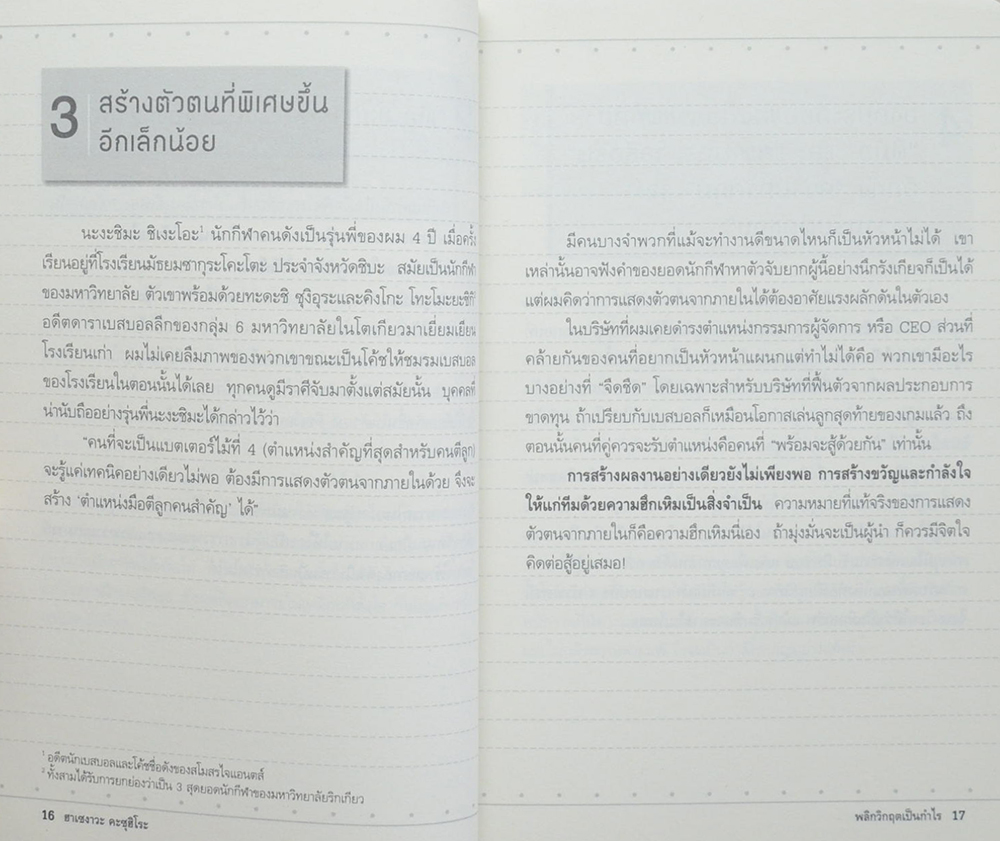 3
สร้างตัวตนที่พิเศษขึ้น
อีกเล็กน้อย
นะงะชิมะ ชิเงะโอะ¹ นักกีฬาคนดังเป็นรุ่นพี่ของผม 4 ปี เมื่อครั้ง
เรียนอยู่ที่โรงเรียนมัธยมซากุระโคะโตะ ประจำจังหวัดชิบะ สมัยเป็นนักกีฬา
ของมหาวิทยาลัย ตัวเขาพร้อมด้วยทะดะชิ ซุงิอุระและคิงโกะ โทะโมะยะชิกิ
อดีตดาราเบสบอลลีกของกลุ่ม 6 มหาวิทยาลัยในโตเกียวมาเยี่ยมเยียน
โรงเรียนเก่า ผมไม่เคยลืมภาพของพวกเขาขณะเป็นโค้ชให้ชมรมเบสบอล
ของโรงเรียนในตอนนั้นได้เลย ทุกคนดูมีราศีจับมาตั้งแต่สมัยนั้น บุคคลที่
น่านับถืออย่างรุ่นพี่นะงะชิมะได้กล่าวไว้ว่า
"คนที่จะเป็นแบตเตอร์ไม้ที่ 4 (ตำแหน่งสำคัญที่สุดสำหรับคนตีลูก)
จะรู้แค่เทคนิคอย่างเดียวไม่พอ ต้องมีการแสดงตัวตนจากภายในด้วย จึงจะ
สร้าง 'ตำแหน่งมือตีลูกคนสำคัญ' ได้"
¹ อดีตนักเบสบอลและโค้ชชื่อดังของสโมสรไจแอนตส์
² ทั้งสามได้รับการยกย่องว่าเป็น 3 สุดยอดนักกีฬาของมหาวิทยาลัยริกเกียว
16 ฮาเซงาวะ คะซุฮิโระ
มีคนบางจำพวกที่แม้จะทำงานดีขนาดไหนก็เป็นหัวหน้าไม่ได้ เขา
เหล่านั้นอาจฟังคำของยอดนักกีฬาหาตัวจับยากผู้นี้อย่างนึกรังเกียจก็เป็นได้
แต่ผมคิดว่าการแสดงตัวตนจากภายในได้ต้องอาศัยแรงผลักดันในตัวเอง
ในบริษัทที่ผมเคยดำรงตำแหน่งกรรมการผู้จัดการ หรือ CEO ส่วนที่
คล้ายกันของคนที่อยากเป็นหัวหน้าแผนกแต่ทำไม่ได้คือ พวกเขามีอะไร
บางอย่างที่ "จืดชืด" โดยเฉพาะสำหรับบริษัทที่ฟื้นตัวจากผลประกอบการ
ขาดทุน ถ้าเปรียบกับเบสบอลก็เหมือนโอกาสเล่นลูกสุดท้ายของเกมแล้ว ถึง
ตอนนั้นคนที่คู่ควรจะรับตำแหน่งคือคนที่ "พร้อมจะสู้ด้วยกัน" เท่านั้น
การสร้างผลงานอย่างเดียวยังไม่เพียงพอ การสร้างขวัญและกำลังใจ
ให้แก่ทีมด้วยความฮึกเหิมเป็นสิ่งจำเป็น ความหมายที่แท้จริงของการแสดง
ตัวตนจากภายในก็คือความฮึกเหิมนี่เอง ถ้ามุ่งมั่นจะเป็นผู้นำ ก็ควรมีจิตใจ
คิดต่อสู้อยู่เสมอ!
พลิกวิกฤตเป็นกำไร 17